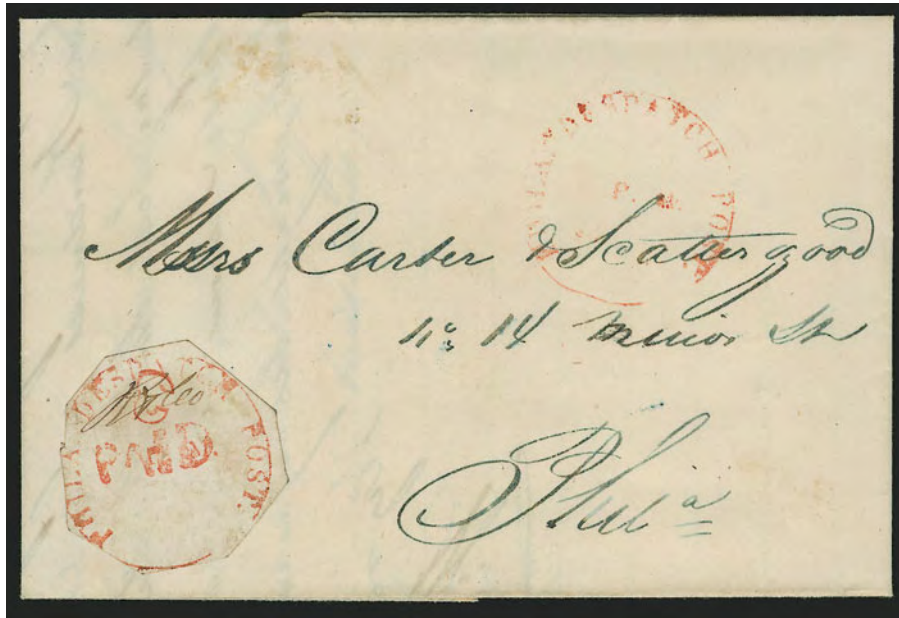 PHILA DESPATCH POST.
P. M.
Messrs Carter & Scattergood
no. 14 minor St
Phila
PHILA DESPATCH POST.
3
R & Co
PAID.